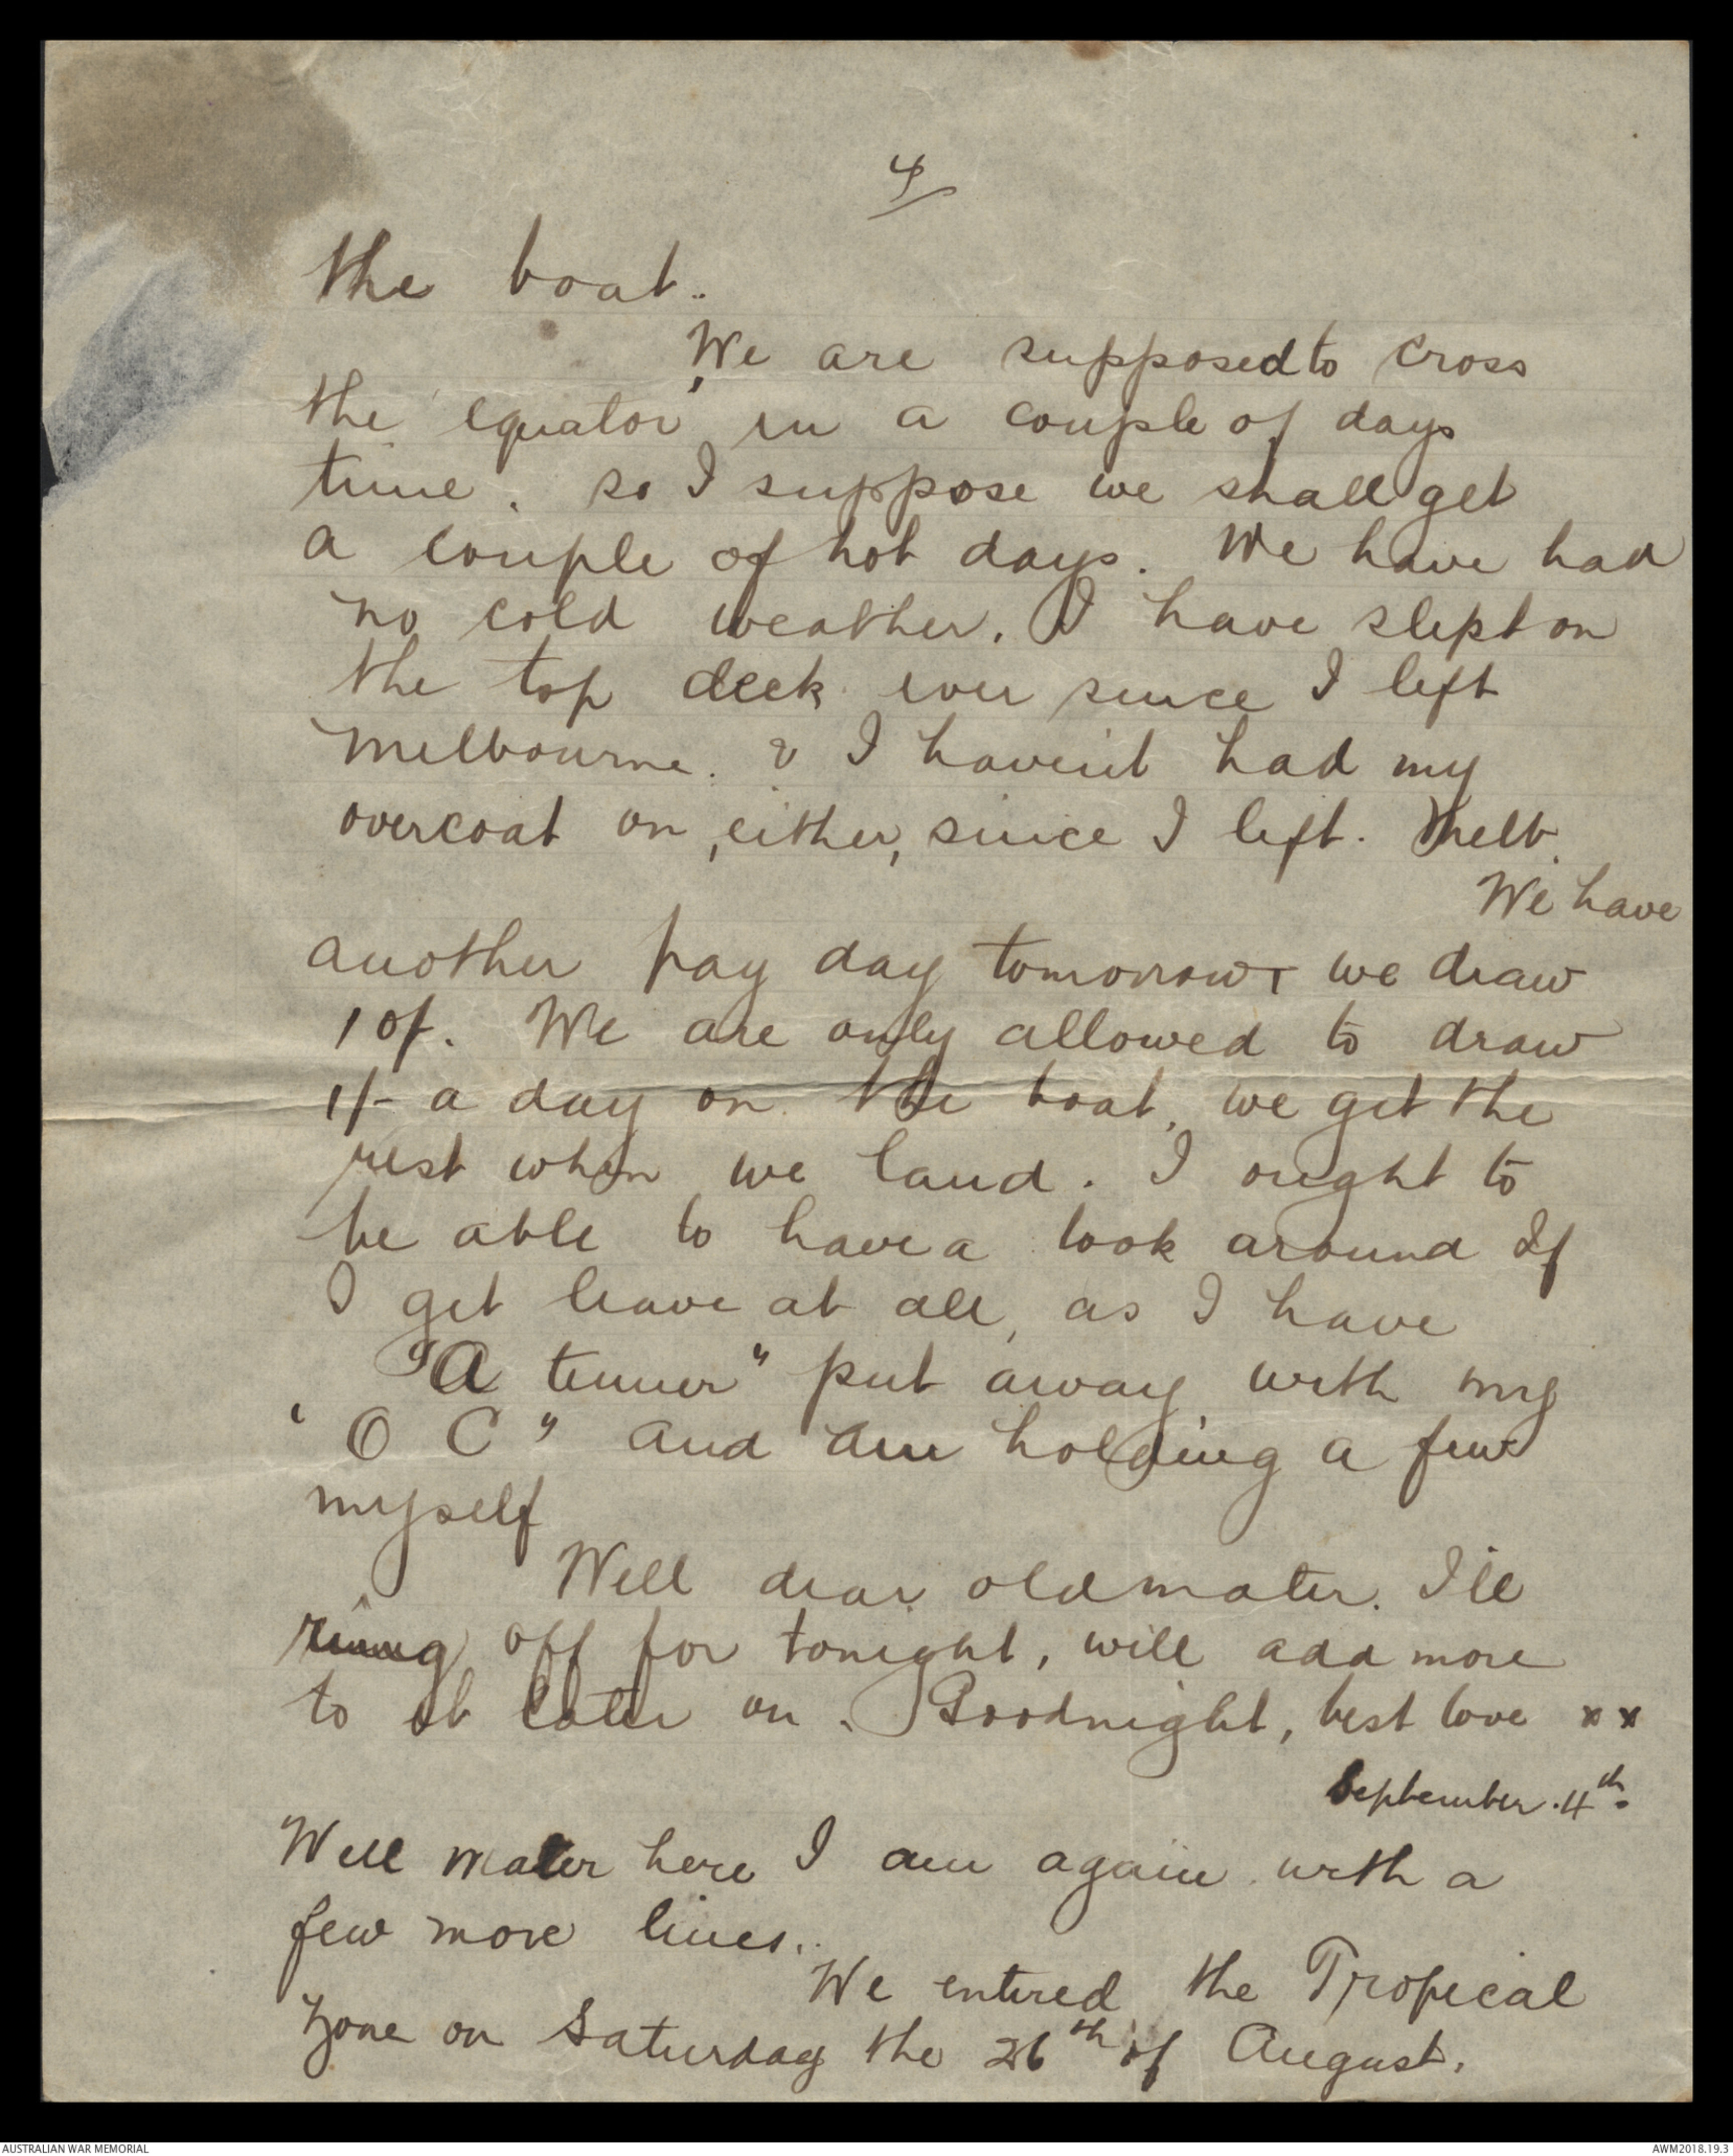 4/
the boat..
We are supposed to cross
the "equator" in a couple of days
time. so I suppose we shall get
a couple of hot days. We have had
no cold weather. I have slept on
the top deck ever since I left
Melbourne. & I haven't had my
overcoat on, either, since I left. Melb.
We have
another pay day tomorrow, we draw
10/. We are only allowed to draw
1/- a day on the boat, we get the
rest when we land. I ought to
be able to have a look around If
I get leave at all, as I have
"A tenner" put away with my
"O C" and am holding a few
myself
Well dear old mater. I'll
ring off for tonight, will add more
to it later on. Goodnight, best love xx
September. 4th.
Well mater here I am again with a
few more lines..
We entered the Tropical
Zone on Saturday the 26th of August.
AUSTRALIAN WAR MEMORIAL
AWM2018.19.3